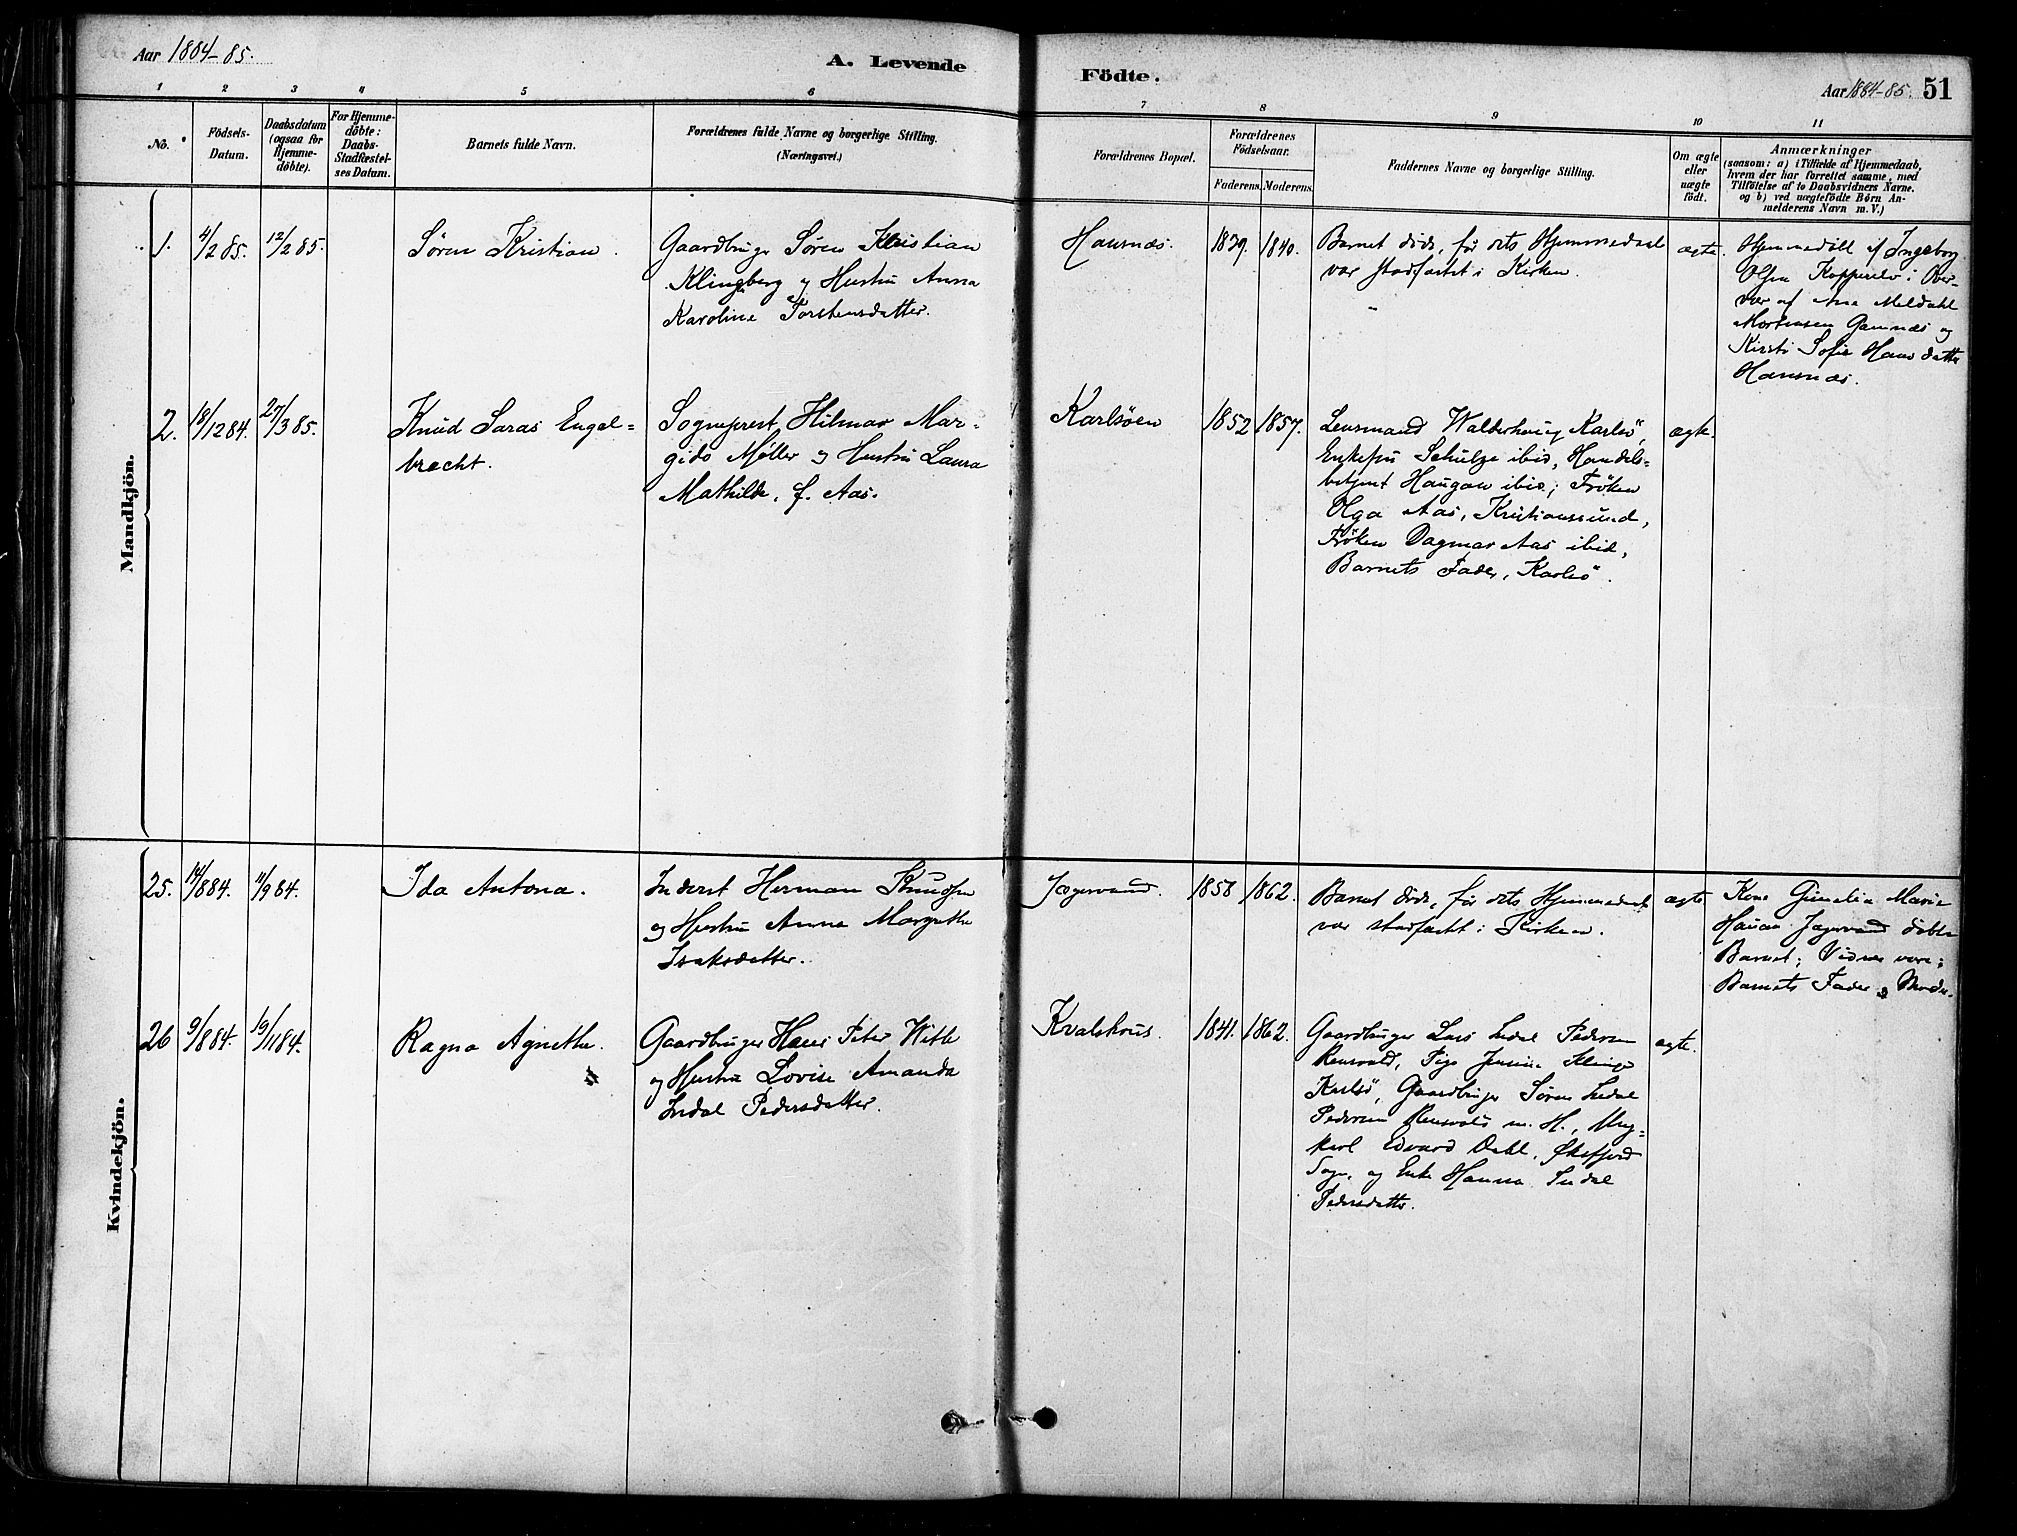 Aar 1884-85.
A. Levende
Födte.
Aar 1884-85. 51
1 2 3 4 5 6 7 8 9 10 11
No.
Födsels-
Datum.
Daabsdatum
(ogsaa for
Hjemme-
döbte).
For Hjemme-
döbte:
Daabs-
Stadfæstel-
ses Datum.
Barnets fulde Navn.
Forældrenes fulde Navne og borgerlige Stilling.
(Næringsvei.)
Forældrenes Bopæl.
Forældrenes
Födselsaar.
Faderens. Moderens.
Faddernes Navne og borgerlige Stilling.
Om ægte
eller
uægte
födt.
Anmærkninger
(saasom: a) i Tilfælde af Hjemmedaab,
hvem der har forrettet samme, med
Tilföielse af to Daabsvidners Navne.
og b) ved uægtefödte Börn An-
melderens Navn m.V.)
Mandkjön.
1. 4/2 85. 12/2 85.
Søren Kristian.
Gaardbruger Søren Kristian
Klingberg og Hustru Anna
Karoline Torstensdatter.
Hansnæs.
1839. 1840.
Barnet døde, før dets Hjemmedaab
var stadfæstet i Kirken.
ægte.
Hjemmedøbt af Ingeborg
Olsen i Over-
vær af Meldahl
Mortensen og
Kirsti Sofie Hansdatter
Hansnæs.
2. 18/12 84. 27/3 85.
Knud Saras Engel=
brecht.
Sogneprest Hilmar Mar-
gido Møller og Hustru Laura
Mathilde, f. Aas.
Karlsöen
1852 1857.
Lensmand Walderhaug Karlsö,
Enkefru Schulze ibid, Handels=
betjent Haugan ibid; Frøken
Olga Aas, Kristianssund,
Frøken Dagmar Aas ibid,
Barnets Fader, Karlsö.
ægte.
Kvindekjön.
25. 14/8 84. 11/9 84.
Ida Antona.
Inderst Herman Knudsen
og Hustru Anna Margrethe
Isaksdatter.
Jægervand.
1858 1862.
Barnet døde, før dets Hjemmedaab
var stadfæstet i Kirken.
ægte
Kone Marie
Jægervand døbte
Barnet; Vidner vare:
Barnets Fader og Moder.
26 9/8 84. 19/11 84.
Ragna Agnethe.
Gaardbruger Hans Peter Witte
og Hustru Lovise Amanda
Indal Pedersdatter.
Kvalshus.
1841. 1862.
Gaardbruger Lars Indal Pedersen
Pige Jensine
Karlsö, Gaardbruger Søren Indal
Pedersen m. H., Ung=
karl Edvard Dahl,
Sogn, og Enke Hanna Indal
Pedersdatter.
ægte.